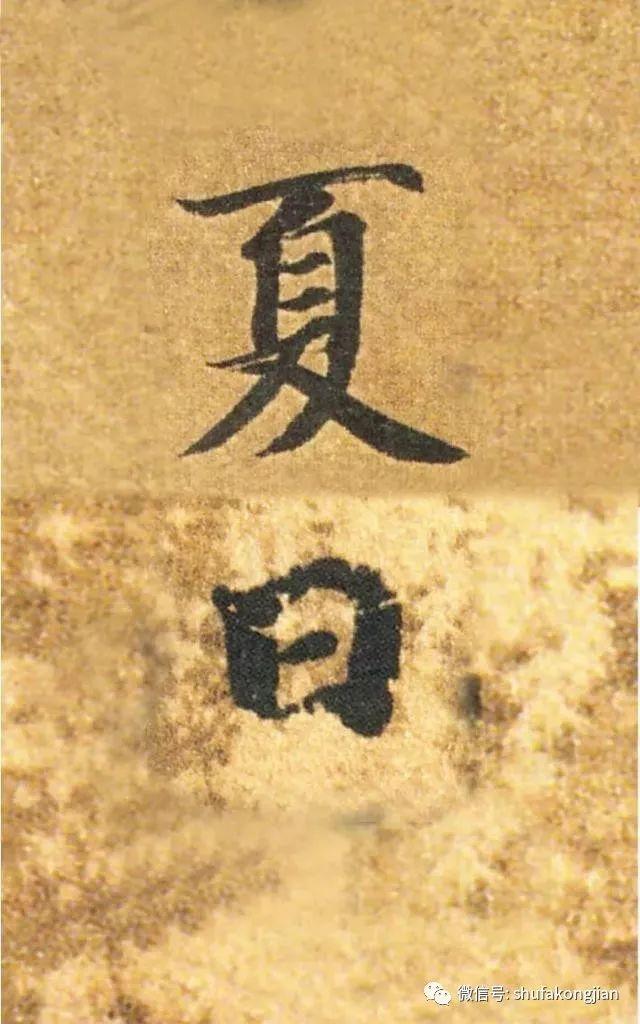 夏
日
微信号: shufakongjian